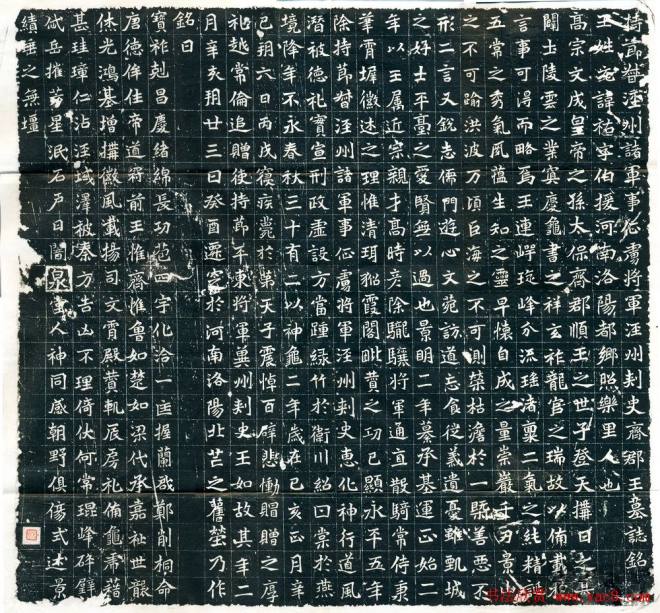 持節督涇州諸軍事征虜將軍涇州刺史齊郡王墓誌銘
王姓元諱祐字伯援河南洛陽都鄉照樂里人也
高宗文成皇帝之孫太保齊郡順王之世子登天構日之
閏土陵雲之業冀慶龜書之祥玄祉龍官之瑞故以備載
言事可得而略焉王連峰琁峰分流瑤渚稟二氣之純精
五常之秀氣風蘊生知之靈早懷自成之量崇巖千刃景山
之不可踰洪波万頃巨海之不可測榮枯澹於一槩善惡不
形二言又銳志儒門遊心文苑訪道忘食從義遺憂雖凱城
之好士平臺之愛賢無以過也景明二年纂承基運正始二
年以王屬近宗親才高時彥除驍驤將軍通直散騎常侍秉
筆霄墀徽述之理惟清珥貂霞閣毗贊之功已顯永平五年
除持節督涇州諸軍事征虜將軍涇州刺史惠化神行道風
潛被德禮實宣刑政虛設方當踵綠竹於衛川紹口棠於燕
境降年不永春秋三十有二以神龜二年歲在己亥正月辛
巳朔六日丙戌寢疾薨於第天子震悼百辟悲慟賵贈之厚
禮越常倫追贈使持節平東將軍冀州刺史王如故其年二
月辛亥朔廿三日癸酉遷窆於河南洛陽北芒之舊塋乃作
銘曰
寶祚剋昌慶緒綿長功苞四宇化洽一匡握蘭戲鄭削桐命
唐德侔往帝道蔚前王惟齊惟魯如楚如梁代承嘉祉世襲
休光鴻基增構徽風載揚司文霄殿贊軌辰房禮備龜帶藉
甚珪璋仁沾涇域澤被秦方吉凶不理倚伏何常琨峰碎璧
斌岳摧芳星泯石戶日闇泉堂人神同慼朝野俱傷式述景
績垂之無壃